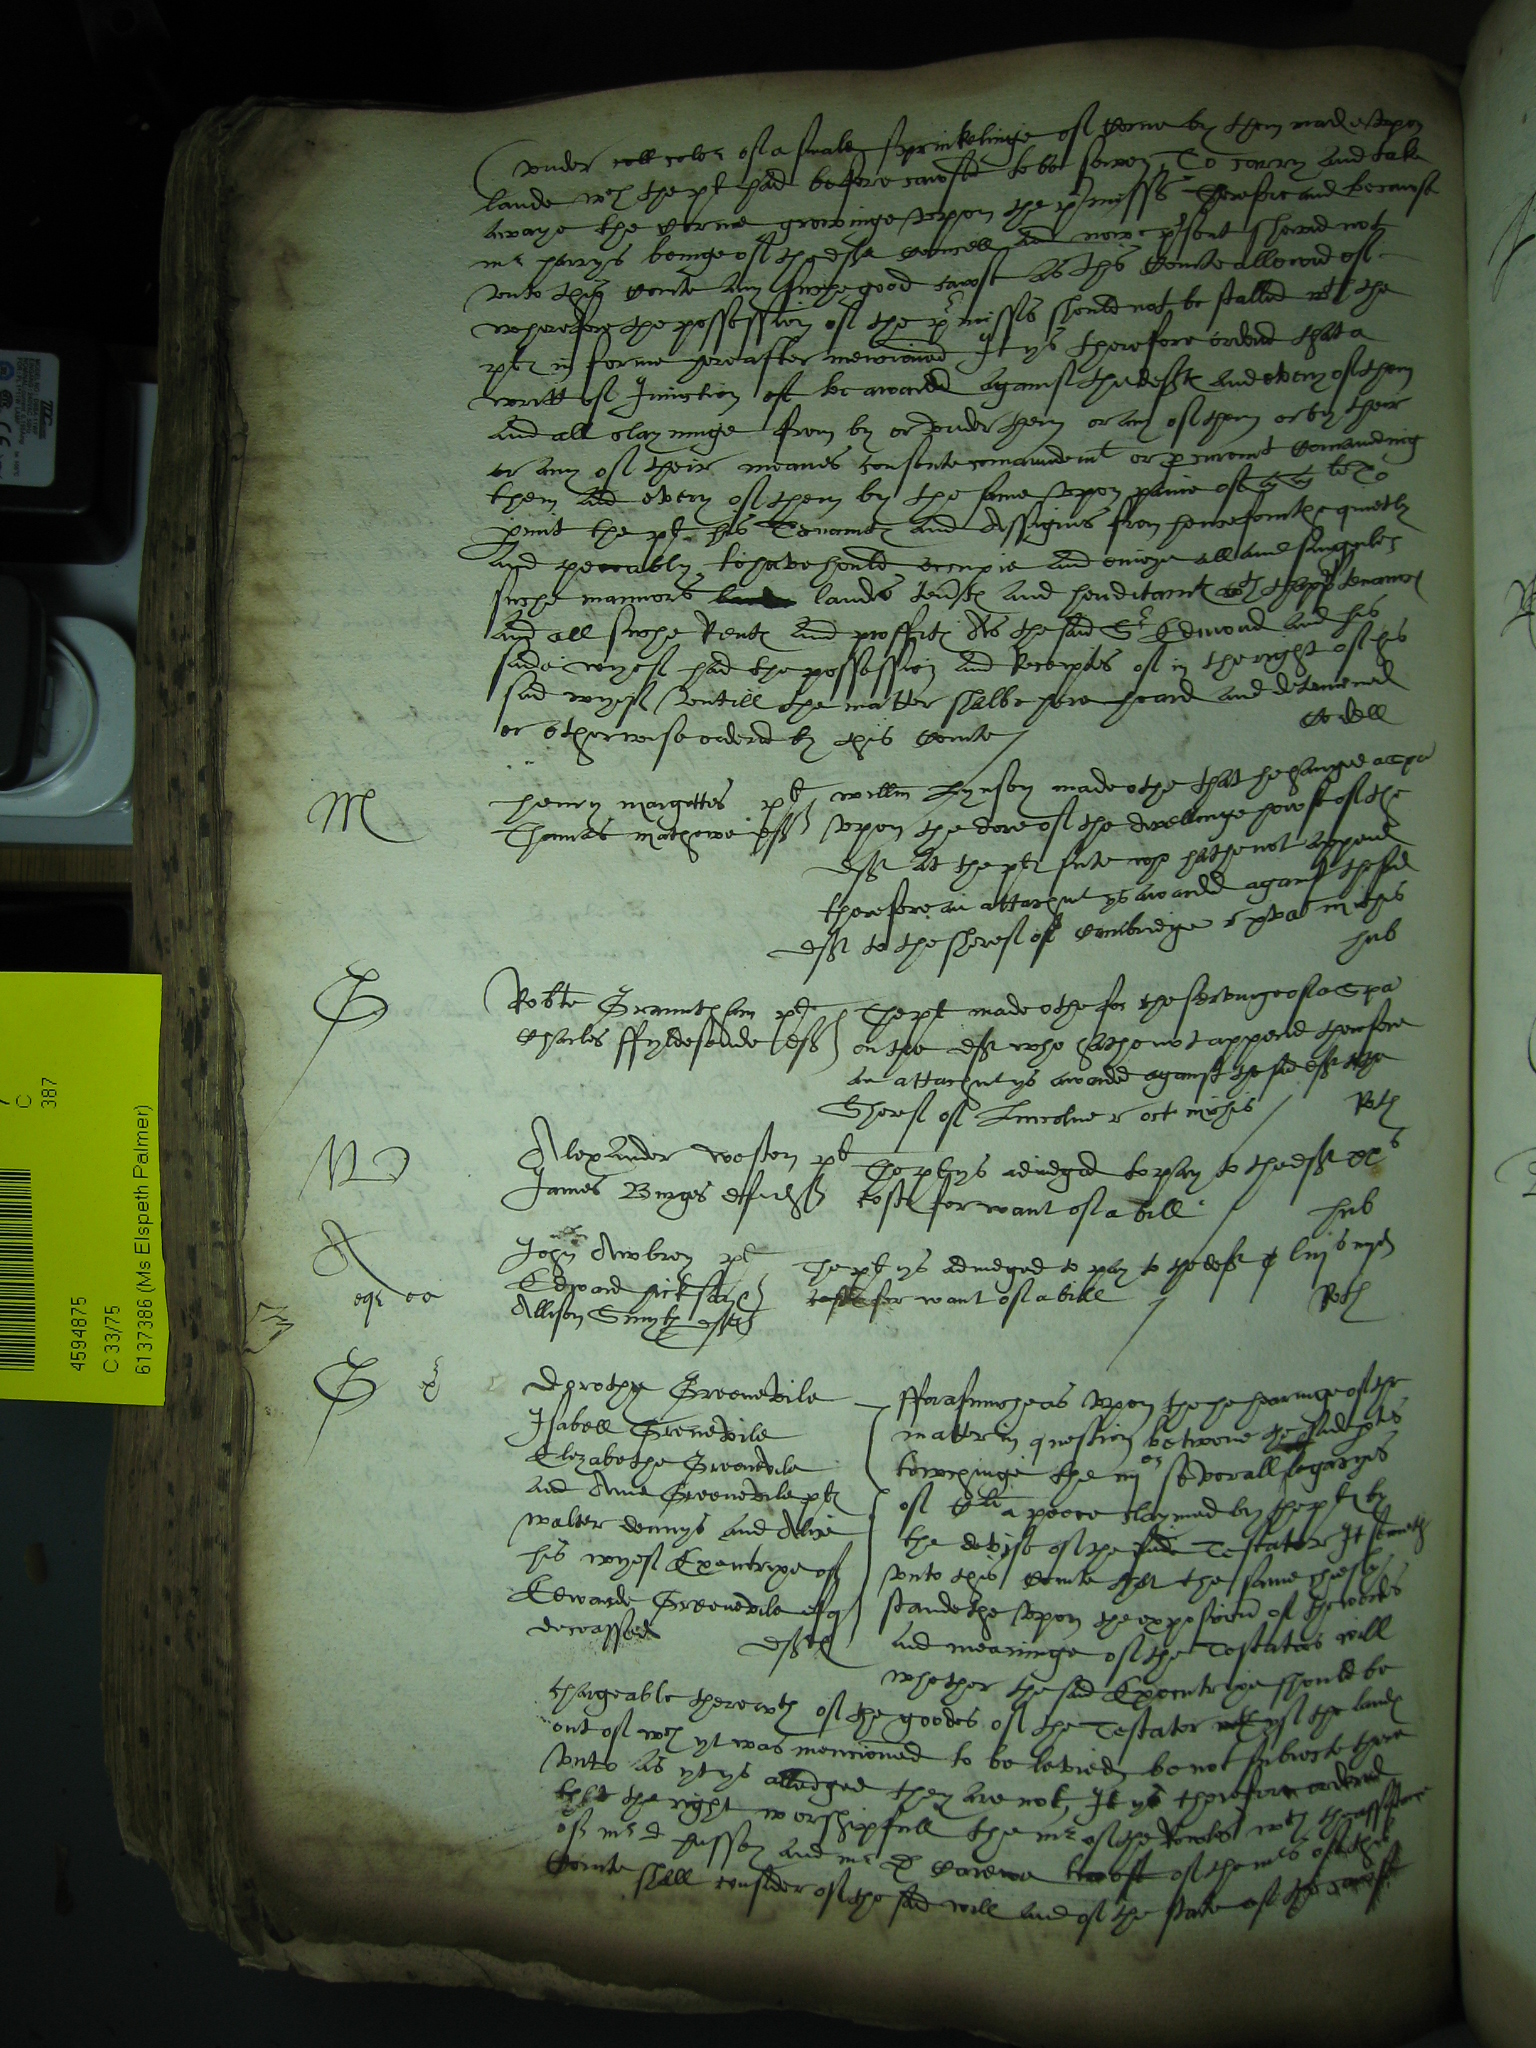 under coll color of a smale sprinkelinge of Corne by them made upon
lande wch the pl had before cawsed to be sowen To carry and take
awaye the Corne growinge upon the pmisss Therefore and because
mr harrys beinge of the defts Councell and nowe psent shewid not
unto this Courte any suche good cawse as this Courte allowed of
wherefore the possession of the pmisss should not be stalled wth the
pl in forme hereafter mencioned It ys therefore ordered that a
writt of Iniunction be awarded against the defts and every of them
and all clayminge from by or under them or any of them or by their
or any of their meanes consente comaundemt or procuremt Comaunding
them and every of them by the same upon paine of to
pmit the pl his Tenants and Assignes from henceforth quietly
and peceably to have hould occupie and enioye all and singuler
suche mannors lands tents and hereditamts wth thapptenances
and all suche Rents and proffits As the said Sr Edmond and his
said wyef had the possession and Receiptes of in the right of his
said wyef untill the matter shalbe here heard and determined
or otherwise ordered by this Courte
Cordell
M
henry margettes pl
Thomas mathewe deft
willm Lynsey made othe that he hanged a Spa
upon the dore of the dwellinge howse of the
deft at the pl sute who hathe not appered
therefore an attachmt ys awarded against the said
deft to the Sheref of Cambridge r michis
hub
G
Robte Grauntham pl
Charles ffyldesende deft
The pl made othe for the servinge of a Spa
on the deft who hathe not appered therefore
an attachmt ys awarded against the said deft to the
Sheref of Lincolne r oct michis
Reth
Alexander weston pl
James Burges deft
The pl ys adiudged to pay to the deft xxs
costs for want of a bill
hub
A
John Awbrey pl
Edward
Allison Smyth defts
The pl ys adiudged to pay to the deft
costs for want of a bill
Reth
G
Dorothye Greenevile
Isabell Grenevile
Elizabethe Greenevile
and Anne Greenevile pls
walter dennys and Alice
his wyef Executrixe of
Edwarde Greenevile esq
decessed defts
fforasmuche as upon the he hearinge of the
matter in question betwene the said ptes
towchinge the iiij or severall legacyes
of a peece claymed by the pls by
the devise of the said Testator It semeth
unto this Courte that the same chefly
standethe upon the exposicion of the wordes
and meaninge of the Testators will
whether the said Executrixe should be
chargeable therewth of the goodes of the Testator yf the lands
out of wch yt was mencioned to be levied be not subiecte there
unto as yt ys alledged they are not, It ys therefore ordered
that the right worshipfull the mr of the Rowles wth the assistance
of mr d hussey and mr d Carewe two of the mrs of this
Courte shall consider of the said will and of the state of the cawse
4594875
C 33/75
6137386 (Ms Elspeth Palmer)
C
387